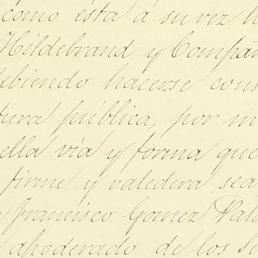 como ésta á su vez h
Hildebrand y Compañ
ebiendo hacerse cons
tura pública, por m
ella via y forma que
firme y valedera sea
Francisco Gomez Val
apoderado de los S